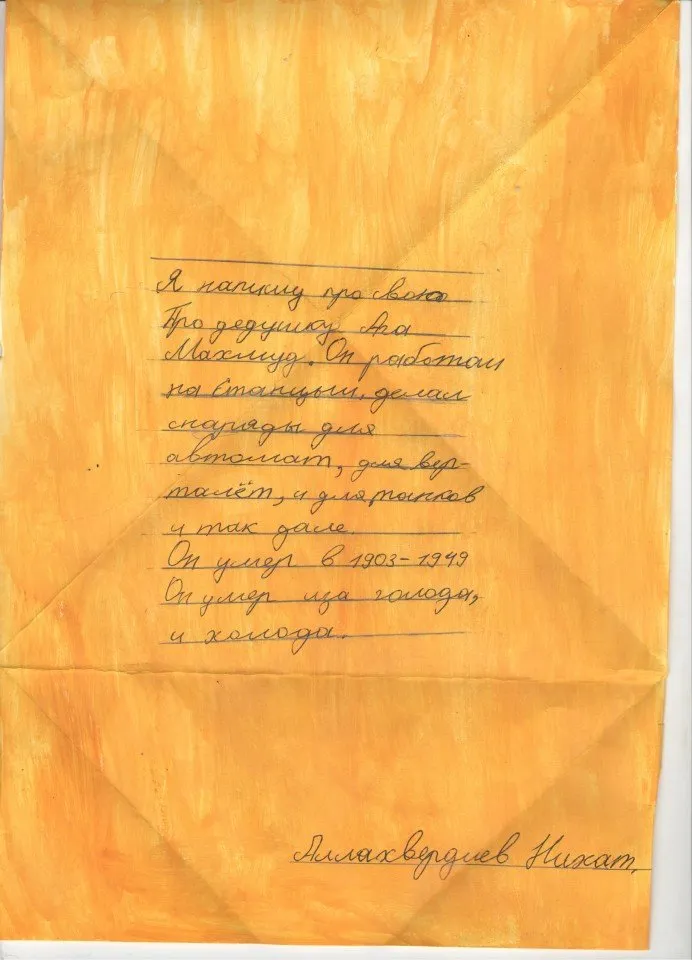 Я напишу про свою
Про дедушку Ага
Махмуд. Он работал
на станцыи. делал
снаряды для
автомат, для вер-
талёт, и для танков
и так дале.
Он умер в 1903-1949
Он умер иза голода,
и холода.
Аллахвердиев Нихат.